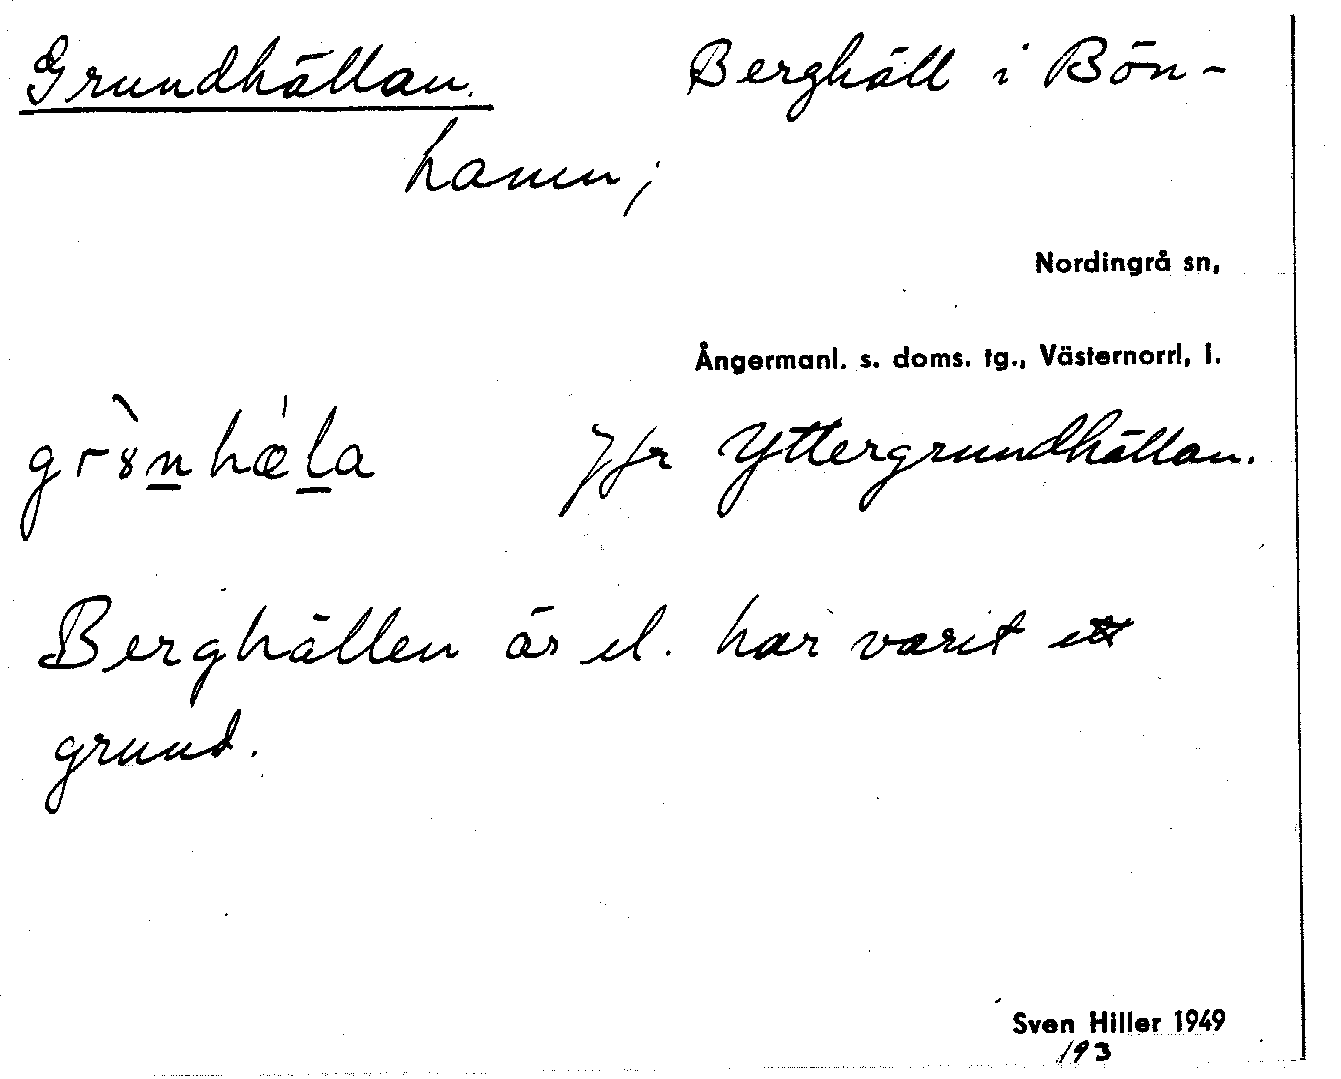 Grundhällan. Berghäll i Bön-
hamn;
Nordingrå sn,
Ångermanl. s. doms. tg., Västernorrl, l.
grs̀n̲hæ̍l̲a Jfr Yttergrundhällan.
Berghällen är el. har varit ett
grund.
Sven Hiller 1949
193